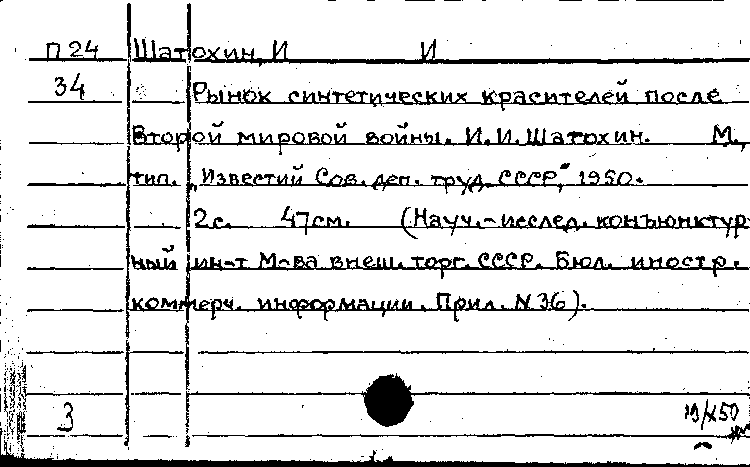 П 24 Шатохин, И И
34 Рынок синтетических красителей после
Второй мировой войны. И.И.Шатохин. М.,
тип. „Известий Сов. деп. труд. СССР," 1950.
2с. 47см. (Науч.-исслед. конъюнктур-
ный ин-т М-ва внеш. торг. СССР. Бюл. иностр.
коммерч. информации. Прил. N 36).
3 19/X50